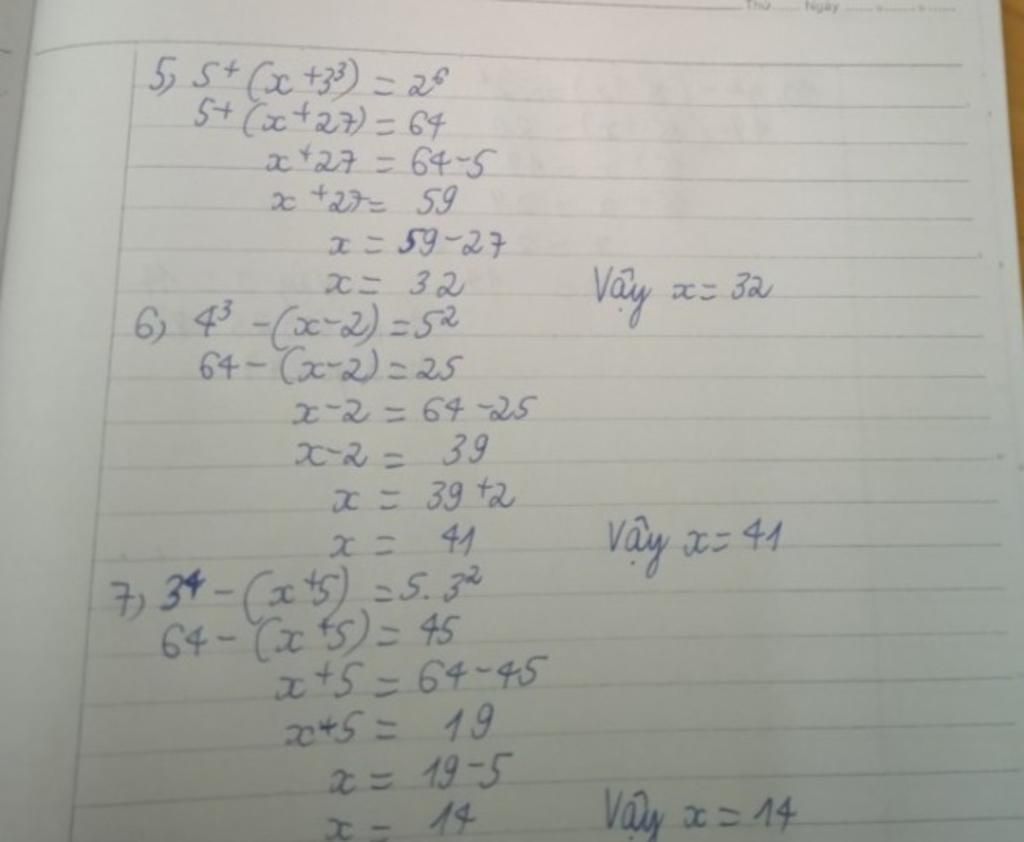 Thứ ..... Ngày .....
5) 5+(x+3³) = 2⁶
5+(x+27) = 64
x+27 = 64-5
x+27 = 59
x = 59-27
x = 32 Vậy x = 32
6) 4³ -(x-2) = 5²
64-(x-2) = 25
x-2 = 64-25
x-2 = 39
x = 39+2
x = 41 Vậy x = 41
7) 3⁴ -(x+5) = 5.3²
64-(x+5) = 45
x+5 = 64-45
x+5 = 19
x = 19-5
x = 14 Vậy x = 14